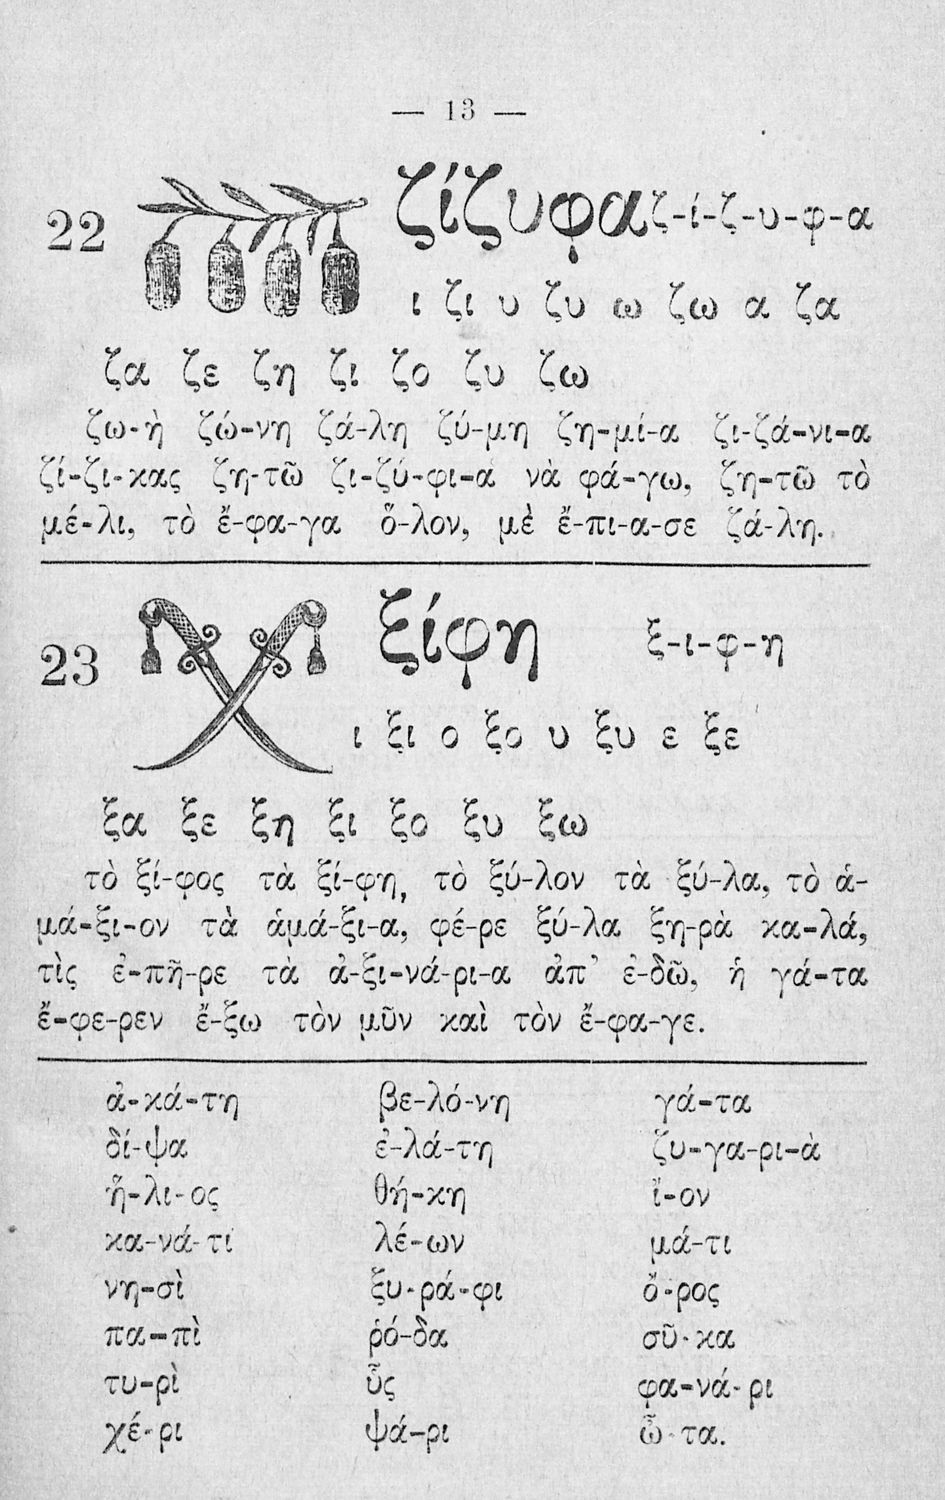 — 13 —
22 ζίζυφα ζ-ί-ζ-υ-φ-α
ι ζι υ ζυ ω ζω α ζα
ζα ζε ζη ζι ζο ζυ ζω
ζω-ὴ ζώ-νη ζά-λη ζύ-μη ζη-μί-α ζι-ζά-νι-α
ζί-ζι-κας ζη-τῶ ζι-ζύ-φι-α νὰ φά-γω, ζη-τῶ τὸ
μέ-λι, τὸ ἔ-φα-γα ὅ-λον, μὲ ἔ-πι-α-σε ζά-λη.
23 ξίφη ξ-ι-φ-η
ι ξι ο ξο υ ξυ ε ξε
ξα ξε ξη ξι ξο ξυ ξω
τὸ ξί-φος τὰ ξί-φη, τὸ ξύ-λον τὰ ξύ-λα, τὸ ἁ-
μά-ξι-ον τὰ ἁμά-ξι-α, φέ-ρε ξύ-λα ξη-ρὰ κα-λά,
τὶς ἐ-πῆ-ρε τὰ ἀ-ξι-νά-ρι-α ἀπ’ ἐ-δῶ, ἡ γά-τα
ἔ-φε-ρεν ἔ-ξω τὸν μῦν καὶ τὸν ἔ-φα-γε.
ἀ-κά-τη βε-λό-νη γά-τα
δί-ψα ἐ-λά-τη ζυ-γα-ρι-ὰ
ἥ-λι-ος θή-κη ἴ-ον
κα-νά-τι λέ-ων μά-τι
νη-σὶ ξυ-ρά-φι ὄ-ρος
πα-πὶ ῥό-δα σῦ-κα
τυ-ρὶ ὗς φα-νά-ρι
χέ-ρι ψά-ρι ὦ-τα.